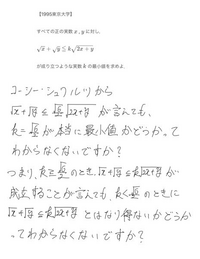 【1995東京大学】
すべての正の実数 x , y に対し、
√x + √y ≦ k√2x + y
が成り立つような実数 k の最小値を求めよ.
コーシー・シュワルツから
√x+√y ≦ √6/2 √2x+y が言えても、
k=√6/2 が本当に最小値かどうかって
わからなくないですか?
つまり、k≧√6/2 のとき、√x+√y ≦ k√2x+y が
成立することが言えても、k<√6/2 のときに
√x+√y ≦ k√2x+y とはなり得ないかどうか
ってわからなくないですか?